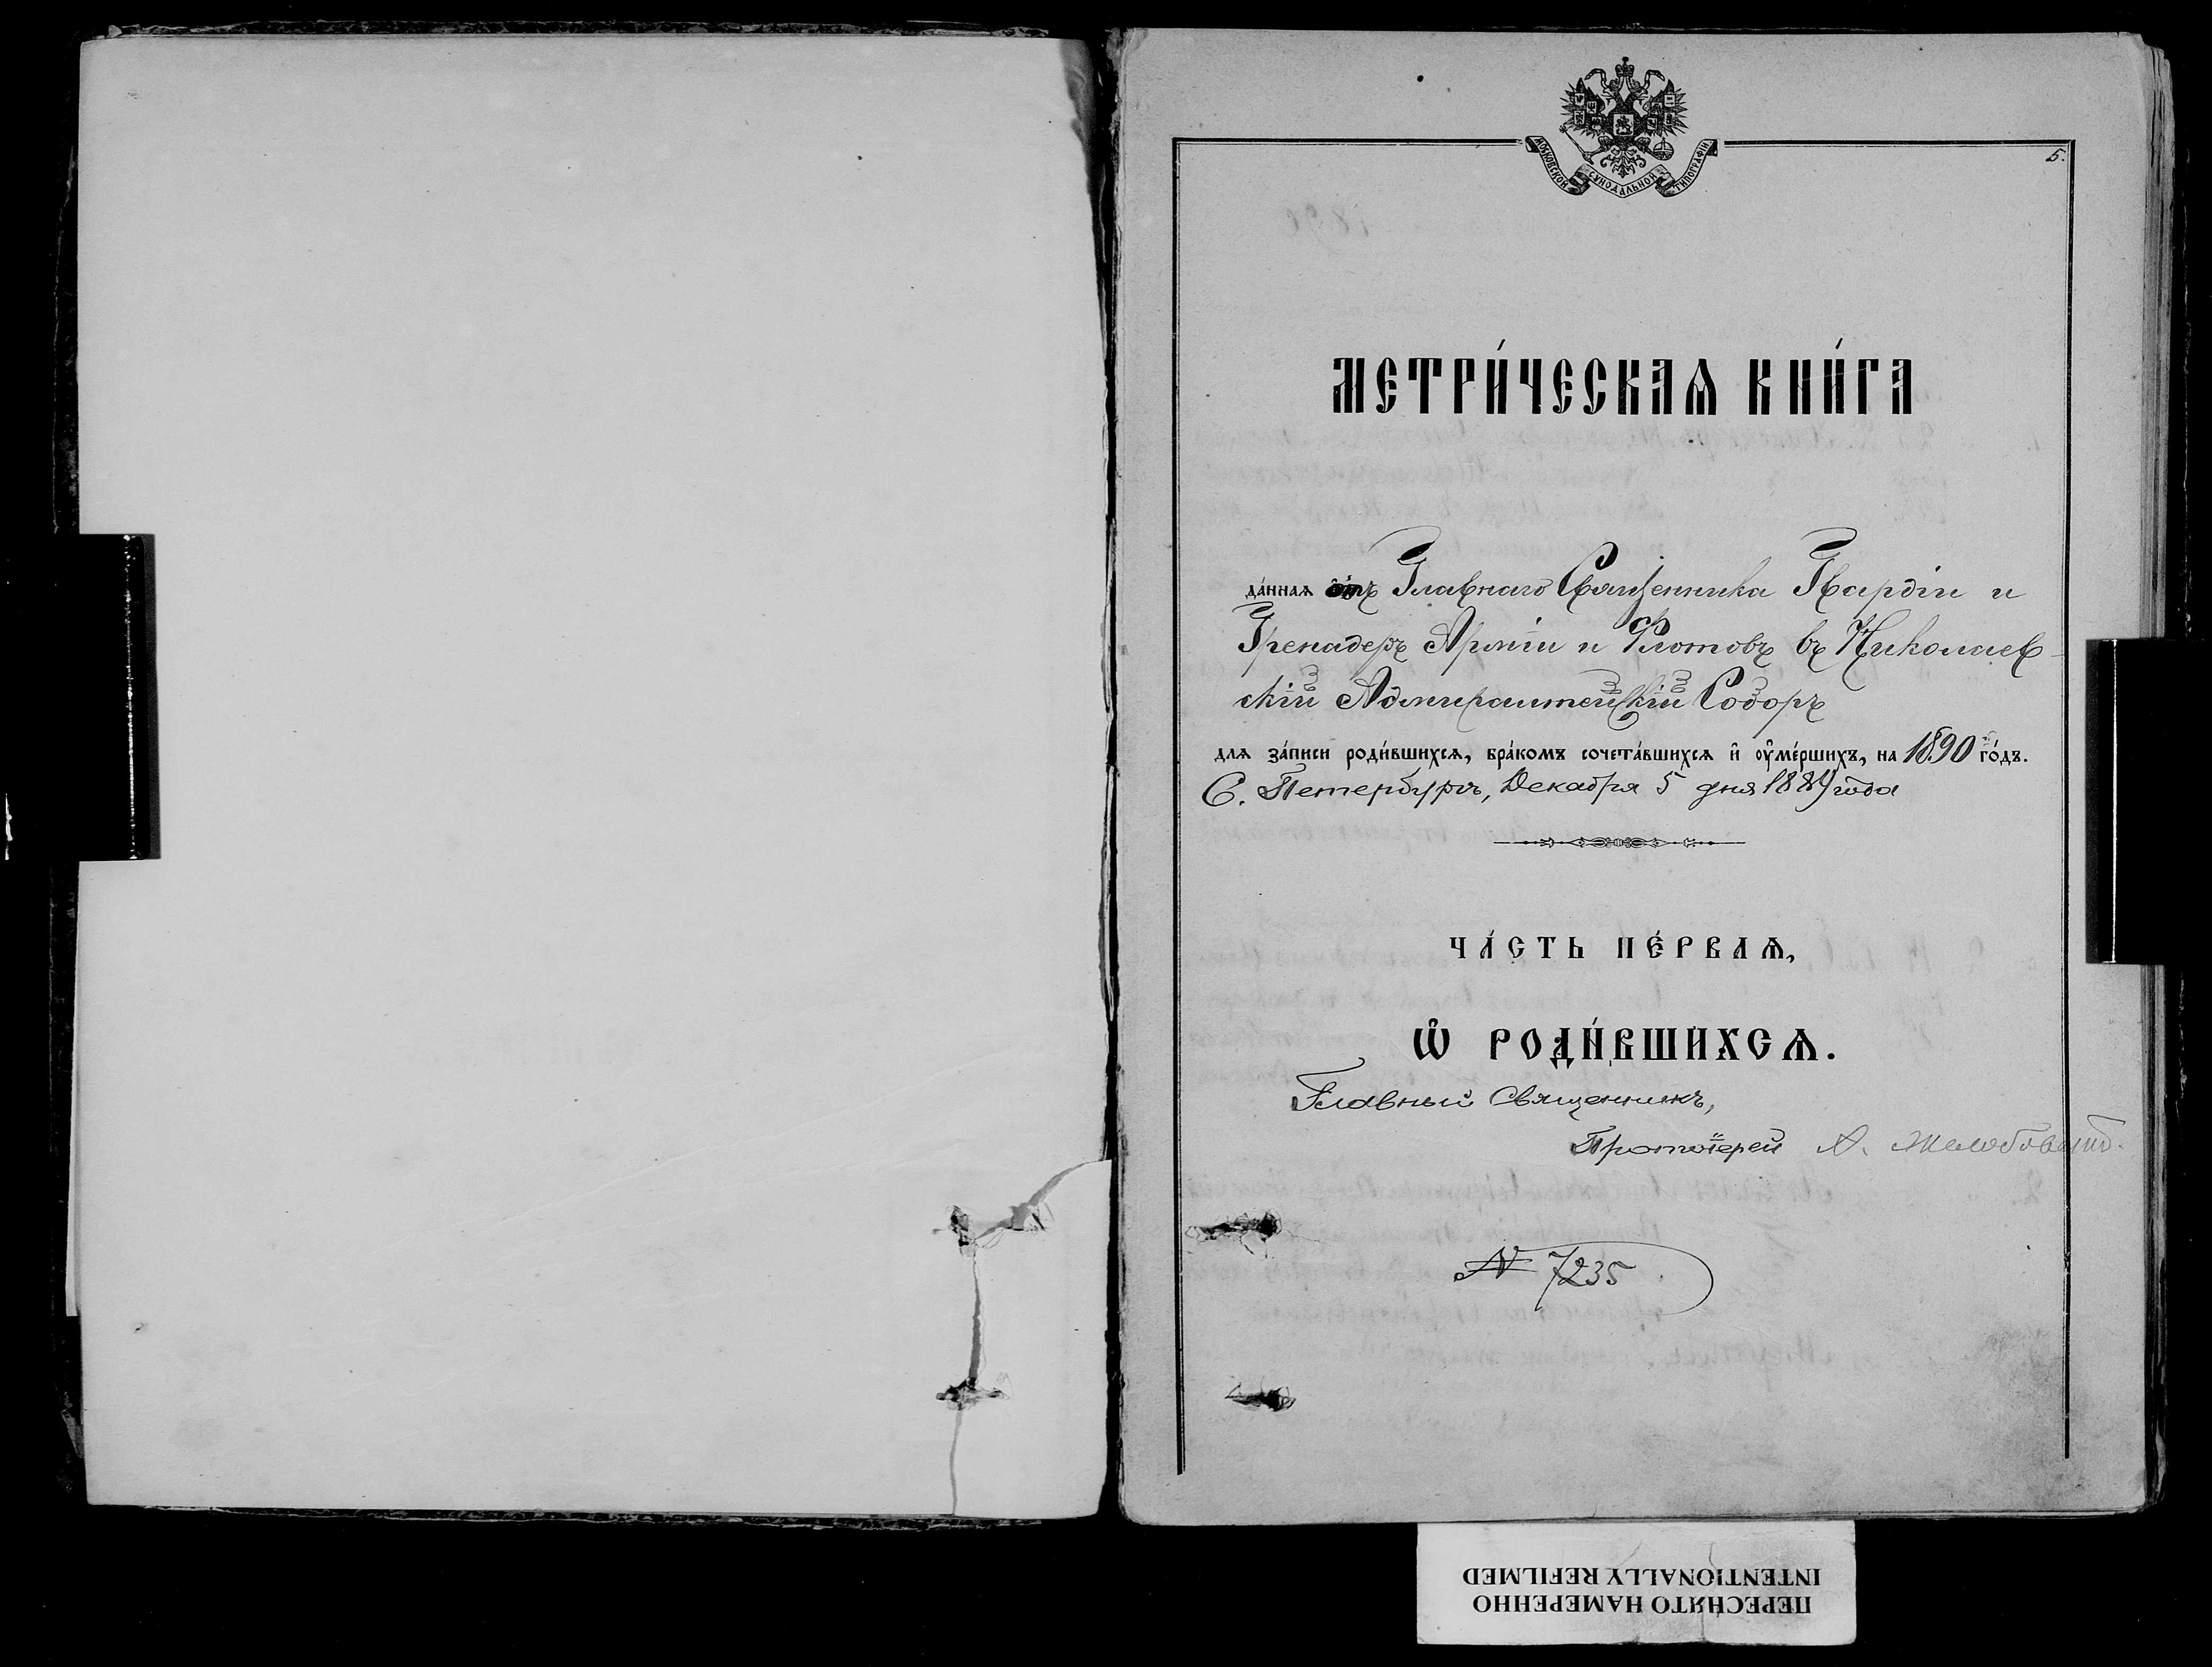 МОСКОВСКОЙ СѴНОДАЛЬНОЙ ТИПОГРАФІИ
5.
МЕТРИ́ЧЕСКАѦ КНИ́ГА
да́ннаѧ отъ Главнаго Священника Гвардіи и
Гренадеръ Арміи и Флотовъ въ Николаев-
скій Адмиралтейскій Соборъ
для за́писи роди́вшихсѧ, бра́комъ сочета́вшихсѧ и҆ ᲂу҆ме́ршихъ, на 1890 го́дъ.
С. Петербургъ, Декабря 5 дня 1889 года
ЧА́СТЬ ПЕ́РВАѦ,
Ѡ҆ РОДИ́ВШИХСѦ.
Главный Священникъ,
Протоіерей А. Желобовскій.
№ 7235
ПЕРЕСНЯТО НАМЕРЕННО
INTENTIONALLY REFILMED